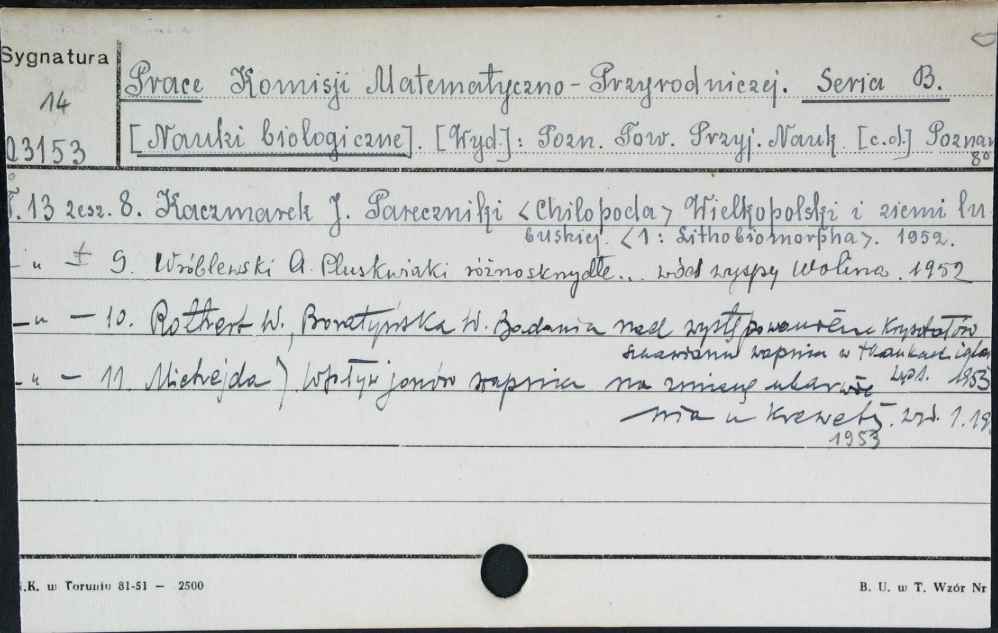 Sygnatura
14
03153
Prace Komisji Matematyczno-Przyrodniczej. Seria B.
[Nauki biologiczne]. [Wyd.]: Pozn. Tow. Przyj. Nauk [c.d.] Poznań
8°
T. 13 zesz. 8. Kaczmarek J. Pareczniki <Chilopoda> Wielkopolski i ziemi lu-
buskiej. <1: Lithobiomorpha>. 1952.
-„- 9. Wróblewski A. Pluskwiaki różnoskrzydłe... wód wyspy Wolina. 1952
-„- 10. Rothert W., Boratyńska W. Badania nad występowaniem kryształów
szczawianu wapnia w tkankach
wyd. 1. 1953
-„- 11. Michejda J. Wpływ jonów wapnia na zmianę ubarwie
nia u krewetki. wyd. 1. 19
1953
.K. w Toruniu 81-51 — 2500
B. U. w T. Wzór Nr